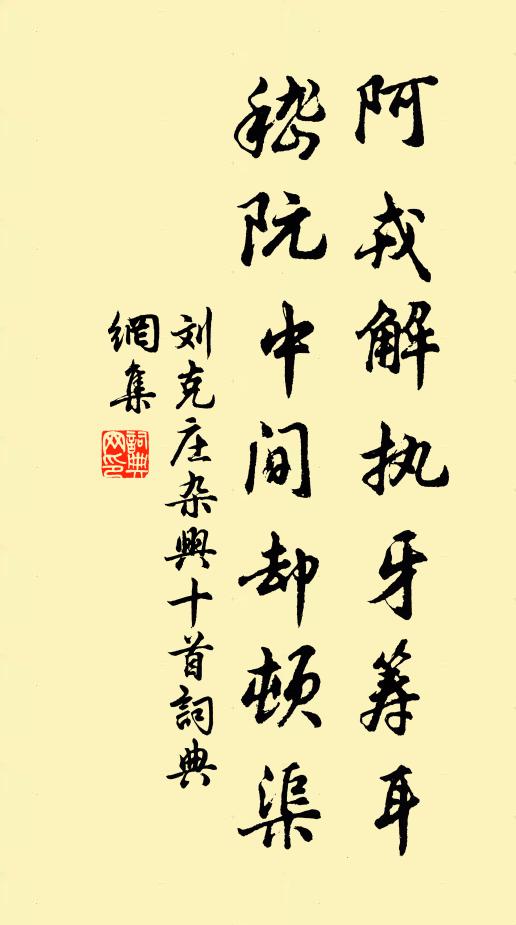 阿戎解执牙筹耳
嵇阮中间却顿渠
刘克庄杂興十首詞典
網集
詞典网印